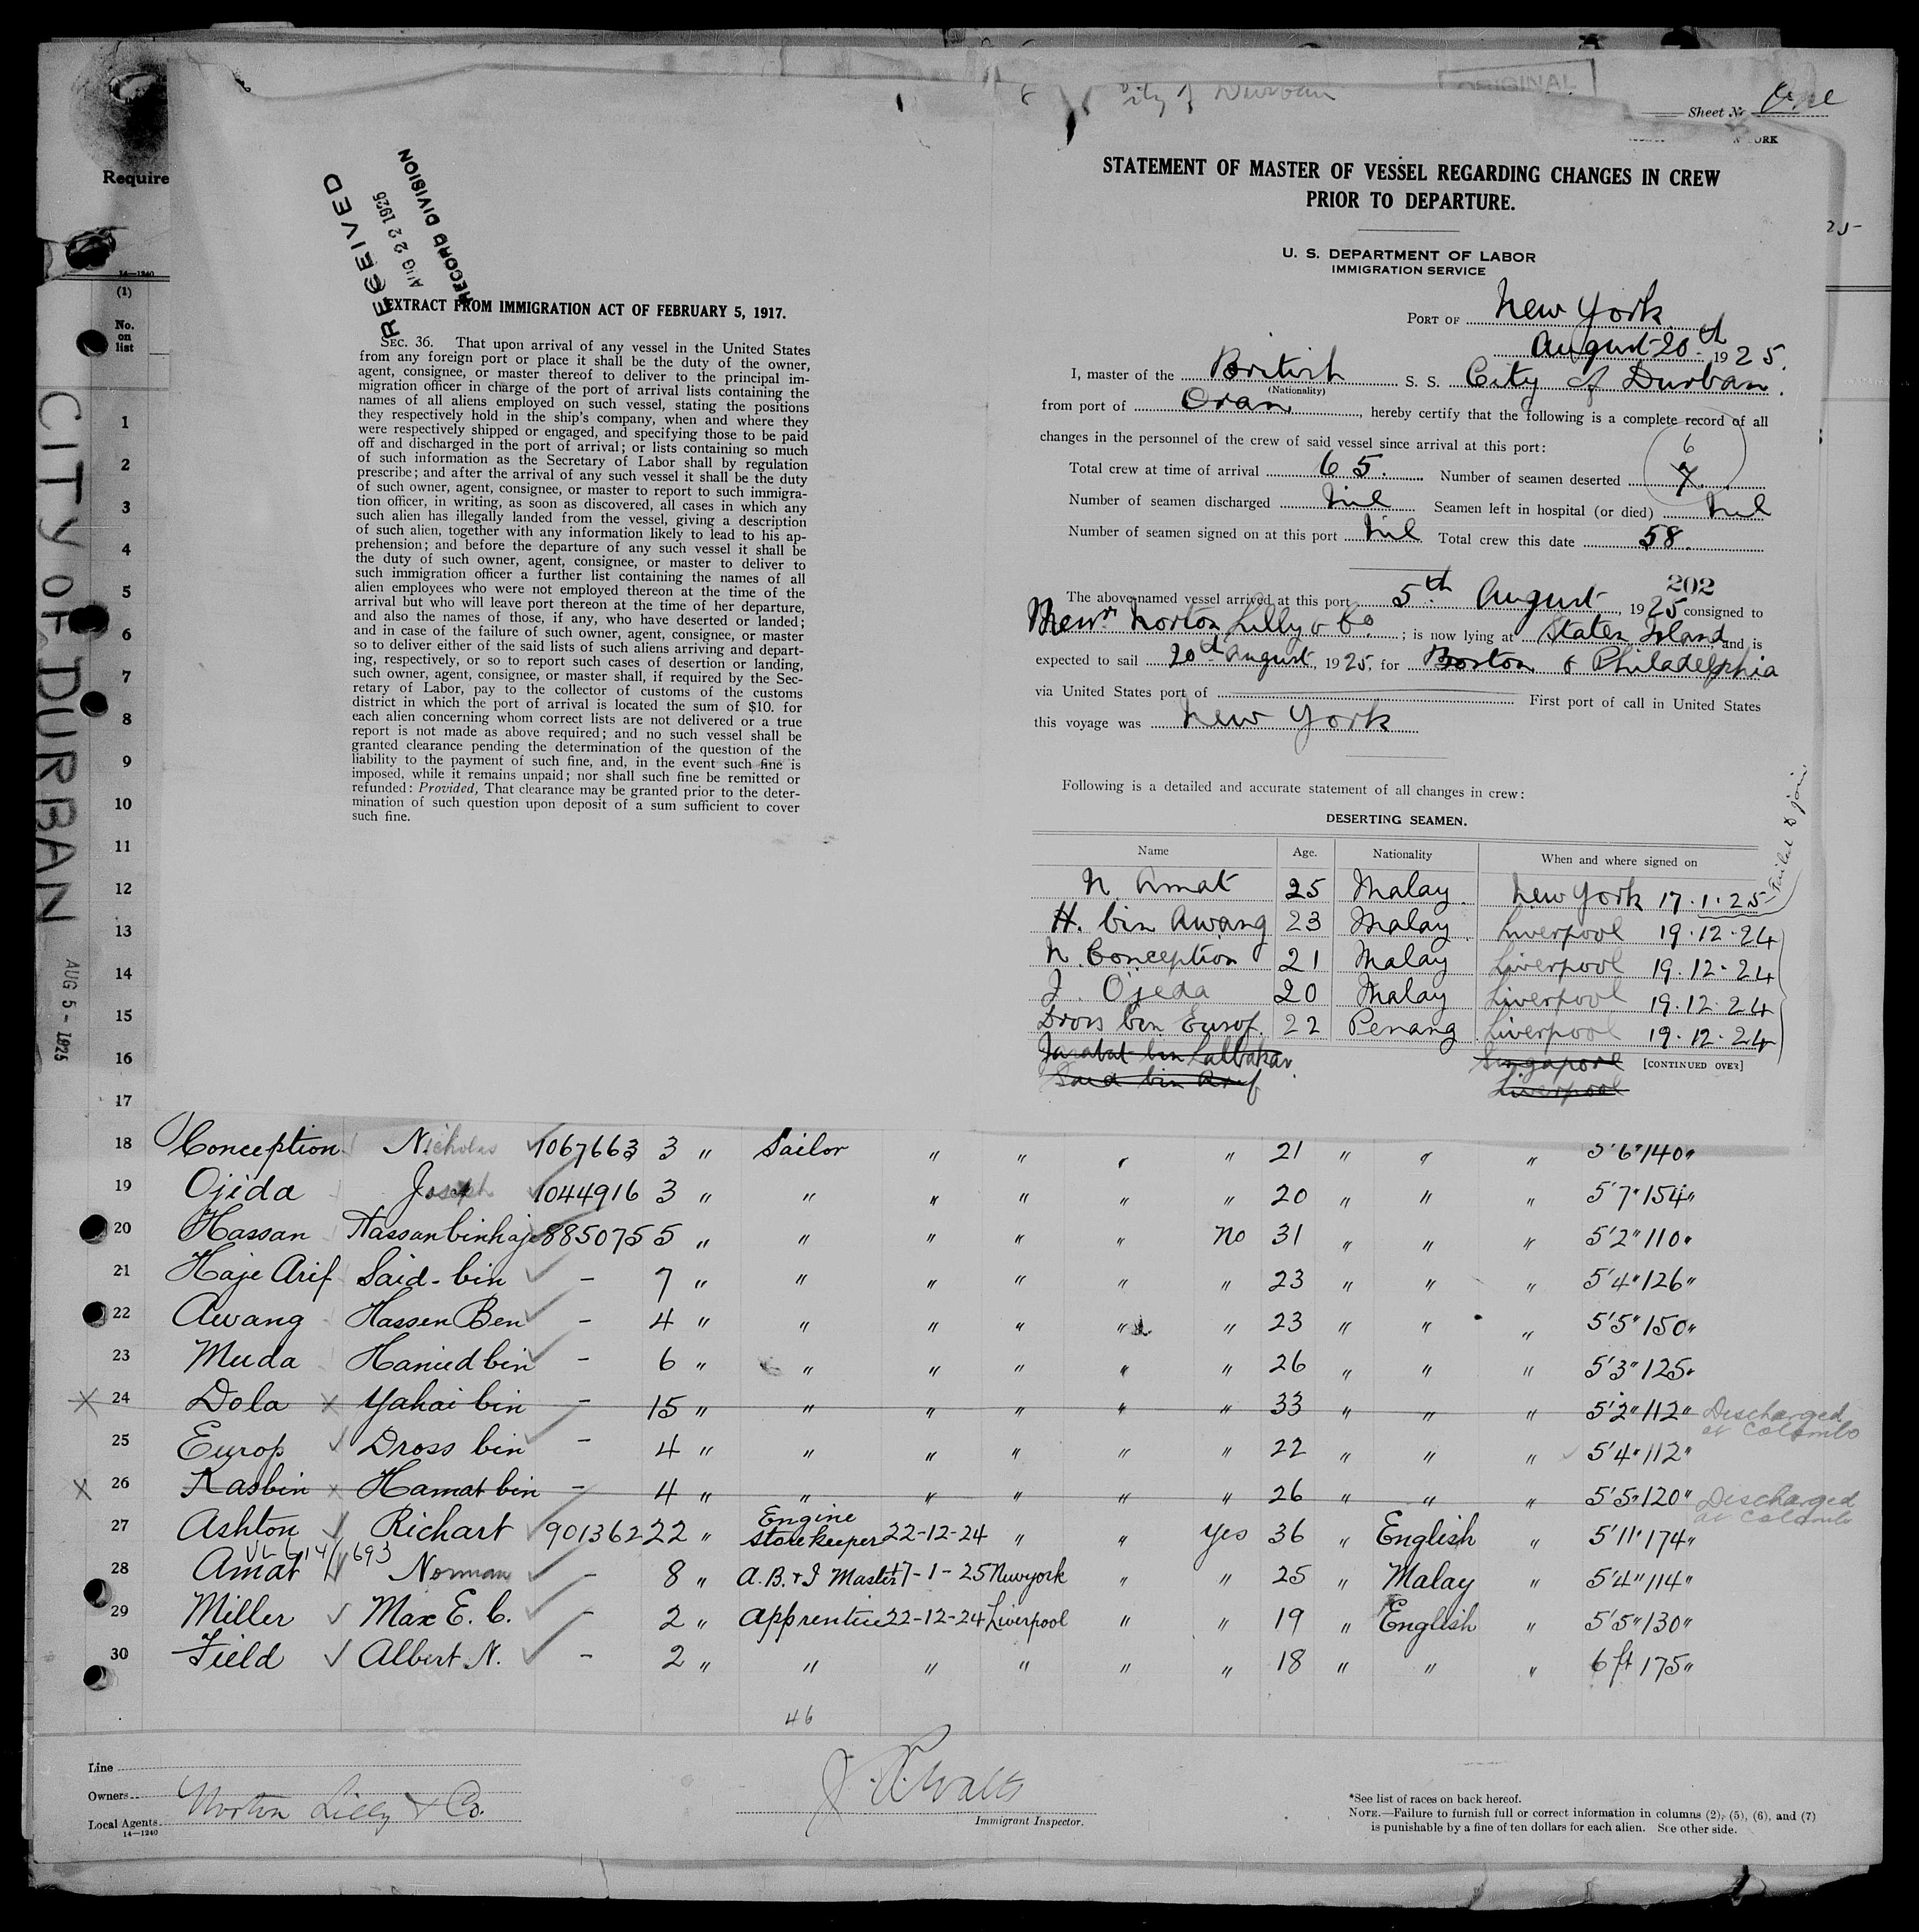 City of Durban
ORIGINAL
Sheet Nr One
ORK
Require
14—1240
(1)
No.
on
list
CITY OF DURBAN AUG 5 - 1925
RECEIVED
AUG 22 1925
RECORD DIVISION
EXTRACT FROM IMMIGRATION ACT OF FEBRUARY 5, 1917.
SEC. 36. That upon arrival of any vessel in the United States
from any foreign port or place it shall be the duty of the owner,
agent, consignee, or master thereof to deliver to the principal im-
migration officer in charge of the port of arrival lists containing the
names of all aliens employed on such vessel, stating the positions
they respectively hold in the ship's company, when and where they
were respectively shipped or engaged, and specifying those to be paid
off and discharged in the port of arrival; or lists containing so much
of such information as the Secretary of Labor shall by regulation
prescribe; and after the arrival of any such vessel it shall be the duty
of such owner, agent, consignee, or master to report to such immigra-
tion officer, in writing, as soon as discovered, all cases in which any
such alien has illegally landed from the vessel, giving a description
of such alien, together with any information likely to lead to his ap-
prehension; and before the departure of any such vessel it shall be
the duty of such owner, agent, consignee, or master to deliver to
such immigration officer a further list containing the names of all
alien employees who were not employed thereon at the time of the
arrival but who will leave port thereon at the time of her departure,
and also the names of those, if any, who have deserted or landed;
and in case of the failure of such owner, agent, consignee, or master
so to deliver either of the said lists of such aliens arriving and depart-
ing, respectively, or so to report such cases of desertion or landing,
such owner, agent, consignee, or master shall, if required by the Sec-
retary of Labor, pay to the collector of customs of the customs
district in which the port of arrival is located the sum of $10. for
each alien concerning whom correct lists are not delivered or a true
report is not made as above required; and no such vessel shall be
granted clearance pending the determination of the question of the
liability to the payment of such fine, and, in the event such fine is
imposed, while it remains unpaid; nor shall such fine be remitted or
refunded: Provided, That clearance may be granted prior to the deter-
mination of such question upon deposit of a sum sufficient to cover
such fine.
STATEMENT OF MASTER OF VESSEL REGARDING CHANGES IN CREW
PRIOR TO DEPARTURE.
U. S. DEPARTMENT OF LABOR
IMMIGRATION SERVICE
PORT OF New York
August 20th 1925.
I, master of the British S. S. City of Durban.
(Nationality)
from port of Oran, hereby certify that the following is a complete record of all
changes in the personnel of the crew of said vessel since arrival at this port:
6
Total crew at time of arrival 65. Number of seamen deserted 7
Number of seamen discharged Nil Seamen left in hospital (or died) Nil
Number of seamen signed on at this port Nil Total crew this date 58.
202
The above-named vessel arrived at this port 5th August, 1925 consigned to
Messrs Norton Lilly & Co; is now lying at Staten Island, and is
expected to sail 20th August, 1925. for Boston & Philadelphia
via United States port of First port of call in United States
this voyage was New York
Following is a detailed and accurate statement of all changes in crew:
DESERTING SEAMEN.
Name Age. Nationality When and where signed on
N Amat 25 Malay. New York 17.1.25 Failed to join
H. bin Awang 23 Malay. Liverpool 19.12.24
N. Conception 21 Malay Liverpool 19.12.24
J. Ojeda 20 Malay Liverpool 19.12.24
Drois bin Eusof. 22 Penang Liverpool 19.12.24
Jarabat bin Lalbakar Singapore [CONTINUED OVER]
Said bin Arif Liverpool
1
2
3
4
5
6
7
8
9
10
11
12
13
14
15
16
17
18 Conception Nicholas 1067663 3 " Sailor " " " " 21 " " " 5'6" 140"
19 Ojida Joseph 1044916 3 " " " " " " 20 " " " 5'7" 154"
20 Hassan Hassan bin haje 885075 5 " " " " " No 31 " " " 5'2" 110"
21 Haje Arif Said - bin - 7 " " " " " " 23 " " " 5'4" 126"
22 Awang Hassen Ben - 4 " " " " " " 23 " " " 5'5" 150"
23 Muda Hamid bin - 6 " " " " " " 26 " " " 5'3" 125"
X 24 Dola x Yahai bin - 15 " " " " " " 33 " " " 5'2" 112" Discharged at Colombo
25 Europ Dross bin - 4 " " " " " " 22 " " " 5'4" 112"
X 26 Kasbin x Hamat bin - 4 " " " " " " 26 " " " 5'5" 120" Discharged at Colombo
27 Ashton Richart 901362 22 " Engine storekeeper 22-12-24 " " Yes 36 " English " 5'11" 174"
28 Amat Norman - 8 " A.B. & I Master 17-1-25 Newyork " " 25 " Malay " 5'4" 114"
29 Miller Max E. C. - 2 " Apprentice 22-12-24 Liverpool " " 19 " English " 5'5" 130"
30 Field Albert N. - 2 " " " " " " 18 " " " 6 ft 175"
46
Line
Owners
Local Agents Norton Lilly & Co.
14—1240
Immigrant Inspector.
*See list of races on back hereof.
NOTE.—Failure to furnish full or correct information in columns (2), (5), (6), and (7)
is punishable by a fine of ten dollars for each alien. See other side.